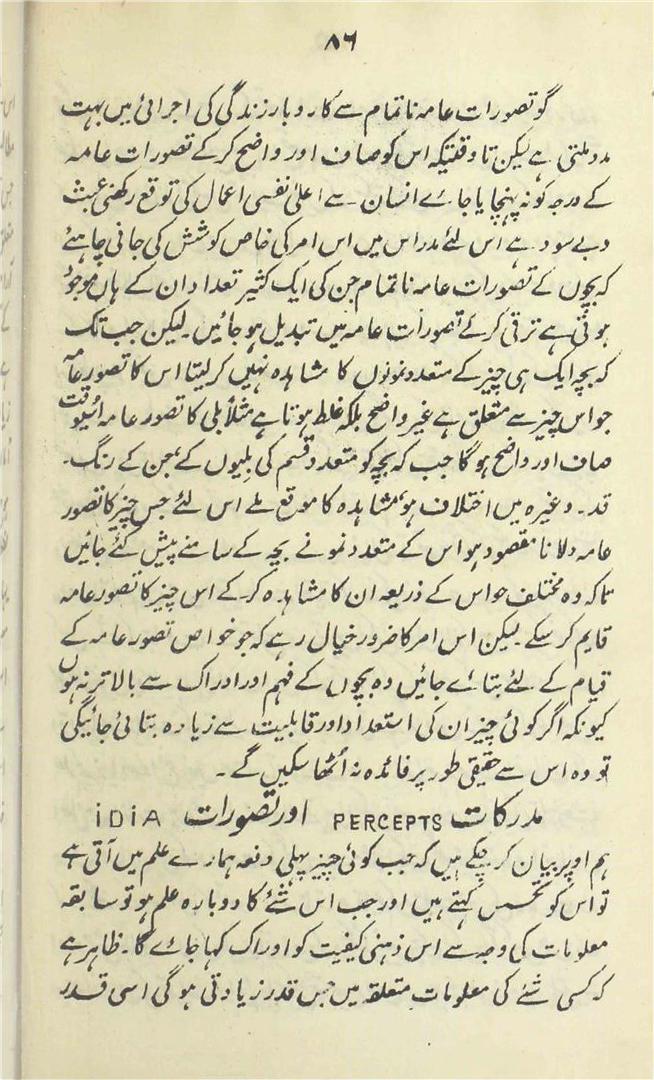 ۸۶
گو تصورات عامہ ناتمام سے کاروبار زندگی کی اجرائی میں بہت
مدد ملتی ہے لیکن تا وقتیکہ اس کو صاف اور واضح کرکے تصورات عامہ
کے درجہ کو نہ پہنچایا جاۓ انسان سے اعلیٰ نفسی اعمال کی توقع رکھنی عبث
و بے سود ہے اس لئے مدراس میں اس امر کی خاص کوشش کی جانی چاہئے
کہ بچوں کے تصورات عامہ ناتمام جن کی ایک کثیر تعداد ان کے ہاں موجود
ہوتی ہے ترقی کرکے تصورات عامہ میں تبدیل ہو جائیں۔ لیکن جب تک
کہ بچہ ایک ہی چیز کے متعدد نمونوں کا مشاہدہ نہیں کر لیتا اس کا تصور عامہ
جو اس چیز سے متعلق ہے غیر واضح بلکہ غلط ہوتا ہے مثلاً بلی کا تصور عامہ اسیوقت
صاف اور واضح ہوگا جب کہ بچہ کو متعدد قسم کی بلیوں کے، جن کے رنگ۔
قد۔ وغیرہ میں اختلاف ہو، مشاہدہ کا موقع ملے اس لئے جس چیز کا تصور
عامہ دلانا مقصود ہو اس کے متعدد نمونے بچہ کے سامنے پیش کئے جائیں
تاکہ وہ مختلف حواس کے ذریعہ ان کا مشاہدہ کرکے اس چیز کا تصور عامہ
قایم کر سکے۔ لیکن اس امر کا ضرور خیال رہے کہ جو خواص تصور عامہ کے
قیام کے لئے بتاۓ جائیں وہ بچوں کے فہم اور ادراک سے بالاتر نہ ہوں
کیونکہ اگر کوئی چیز ان کی استعداد اور قابلیت سے زیادہ بتائی جائیگی
تو وہ اس سے حقیقی طور پر فائدہ نہ اُٹھا سکیں گے۔
مدرکات PERCEPTS اور تصورات iDiA
ہم اوپر بیان کر چکے ہیں کہ جب کوئی چیز پہلی دفعہ ہمارے علم میں آتی ہے
تو اس کو تحسس کہتے ہیں اور جب اس شئے کا دوبارہ علم ہو تو سابقہ
معلومات کی وجہ سے اس ذہنی کیفیت کو ادراک کہا جاۓ گا۔ ظاہر ہے
کہ کسی شئے کی معلومات متعلقہ میں جس قدر زیادتی ہوگی اسی قدر